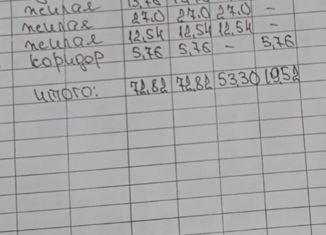 жилая 13,76
жилая 27,0 27,0 27,0 -
жилая 12,54 12,54 12,54 -
коридор 5,76 5,76 - 5,76
итого: 72,82 72,82 53,30 19,52